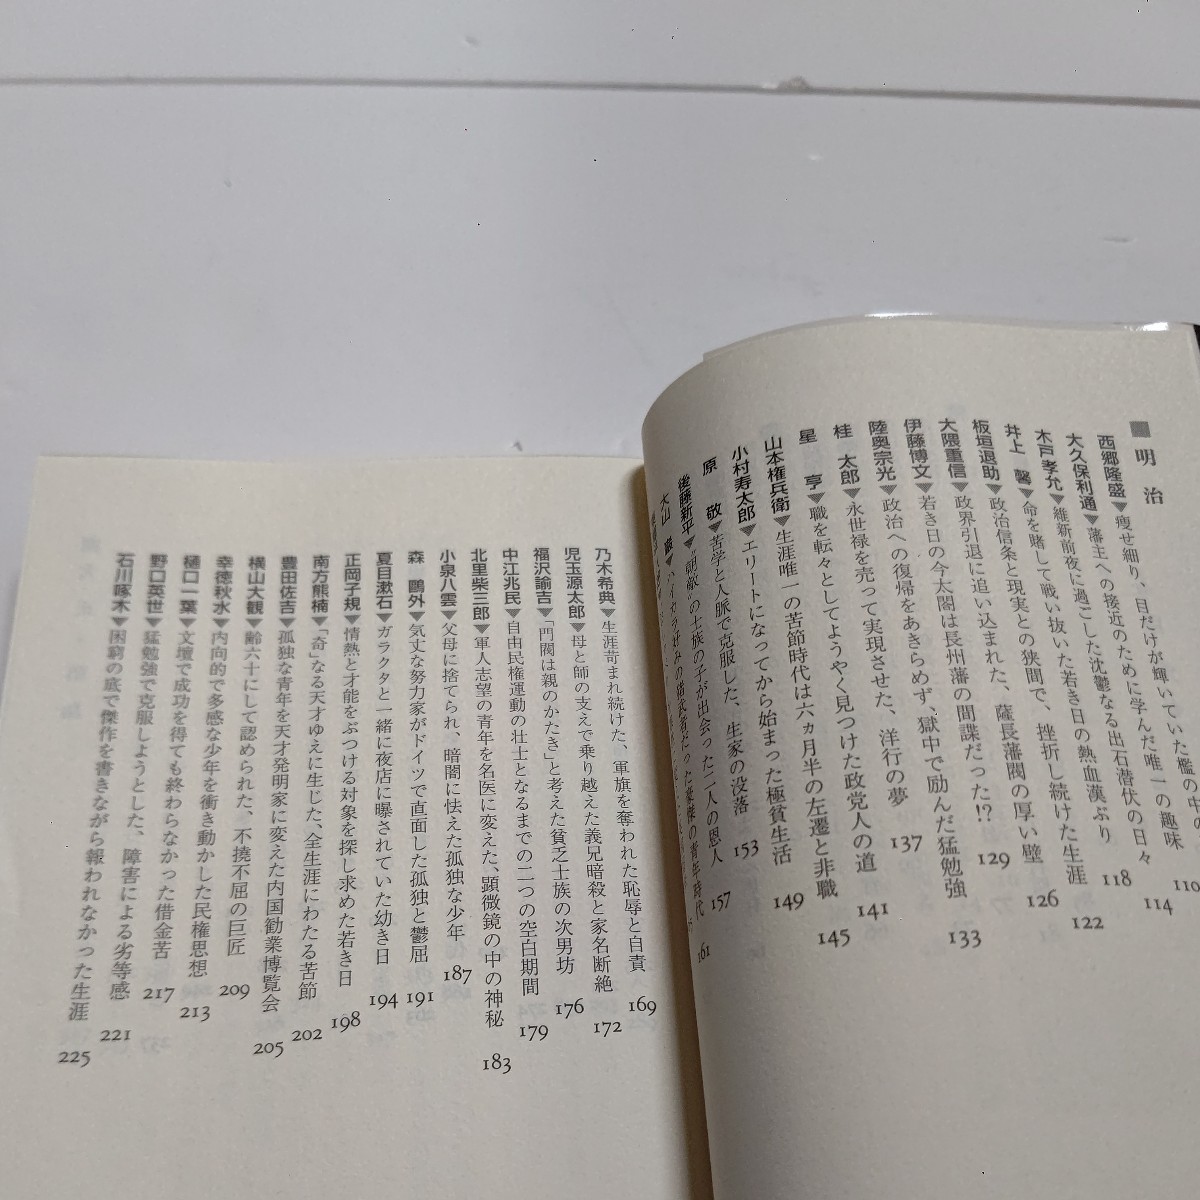 ■明治
西郷隆盛▼痩せ細り、目だけが輝いていた檻の中の 110
大久保利通▼藩主への接近のために学んだ唯一の趣味 114
木戸孝允▼維新前夜に過ごした沈鬱なる出石潜伏の日々 118
井上 馨▼命を賭して戦い抜いた若き日の熱血漢ぶり 122
板垣退助▼政治信条と現実との狭間で、挫折し続けた生涯 126
大隈重信▼政界引退に追い込まれた、薩長藩閥の厚い壁 129
伊藤博文▼若き日の今太閤は長州藩の間諜だった!? 133
陸奥宗光▼政治への復帰をあきらめず、獄中で励んだ猛勉強 137
桂 太郎▼永世禄を売って実現させた、洋行の夢 141
星 亨▼職を転々としてようやく見つけた政党人の道 145
山本権兵衛▼生涯唯一の苦節時代は六ヵ月半の左遷と非職 149
小村寿太郎▼エリートになってから始まった極貧生活 153
原 敬▼苦学と人脈で克服した、生家の没落 157
後藤新平▼"朝敵"の士族の子が出会った二人の恩人 161
大山 巌▼ハイカラ好みの猪武者だった豪傑の青年時代
乃木希典▼生涯苛まれ続けた、軍旗を奪われた恥辱と自責 169
児玉源太郎▼母と師の支えで乗り越えた義兄暗殺と家名断絶 172
福沢諭吉▼「門閥は親のかたき」と考えた貧乏士族の次男坊 176
中江兆民▼自由民権運動の壮士となるまでの二つの空白期間 179
北里柴三郎▼軍人志望の青年を名医に変えた、顕微鏡の中の神秘 183
小泉八雲▼父母に捨てられ、暗闇に怯えた孤独な少年 187
森 鷗外▼気丈な努力家がドイツで直面した孤独と鬱屈 191
夏目漱石▼ガラクタと一緒に夜店に曝されていた幼き日 194
正岡子規▼情熱と才能をぶつける対象を探し求めた若き日 198
南方熊楠▼「奇」なる天才ゆえに生じた、全生涯にわたる苦節 202
豊田佐吉▼孤独な青年を天才発明家に変えた内国勧業博覧会 205
横山大観▼齢六十にして認められた、不撓不屈の巨匠 209
幸徳秋水▼内向的で多感な少年を衝き動かした民権思想 213
樋口一葉▼文壇で成功を得ても終わらなかった借金苦 217
野口英世▼猛勉強で克服しようとした、障害による劣等感 221
石川啄木▼困窮の底で傑作を書きながら報われなかった生涯 225